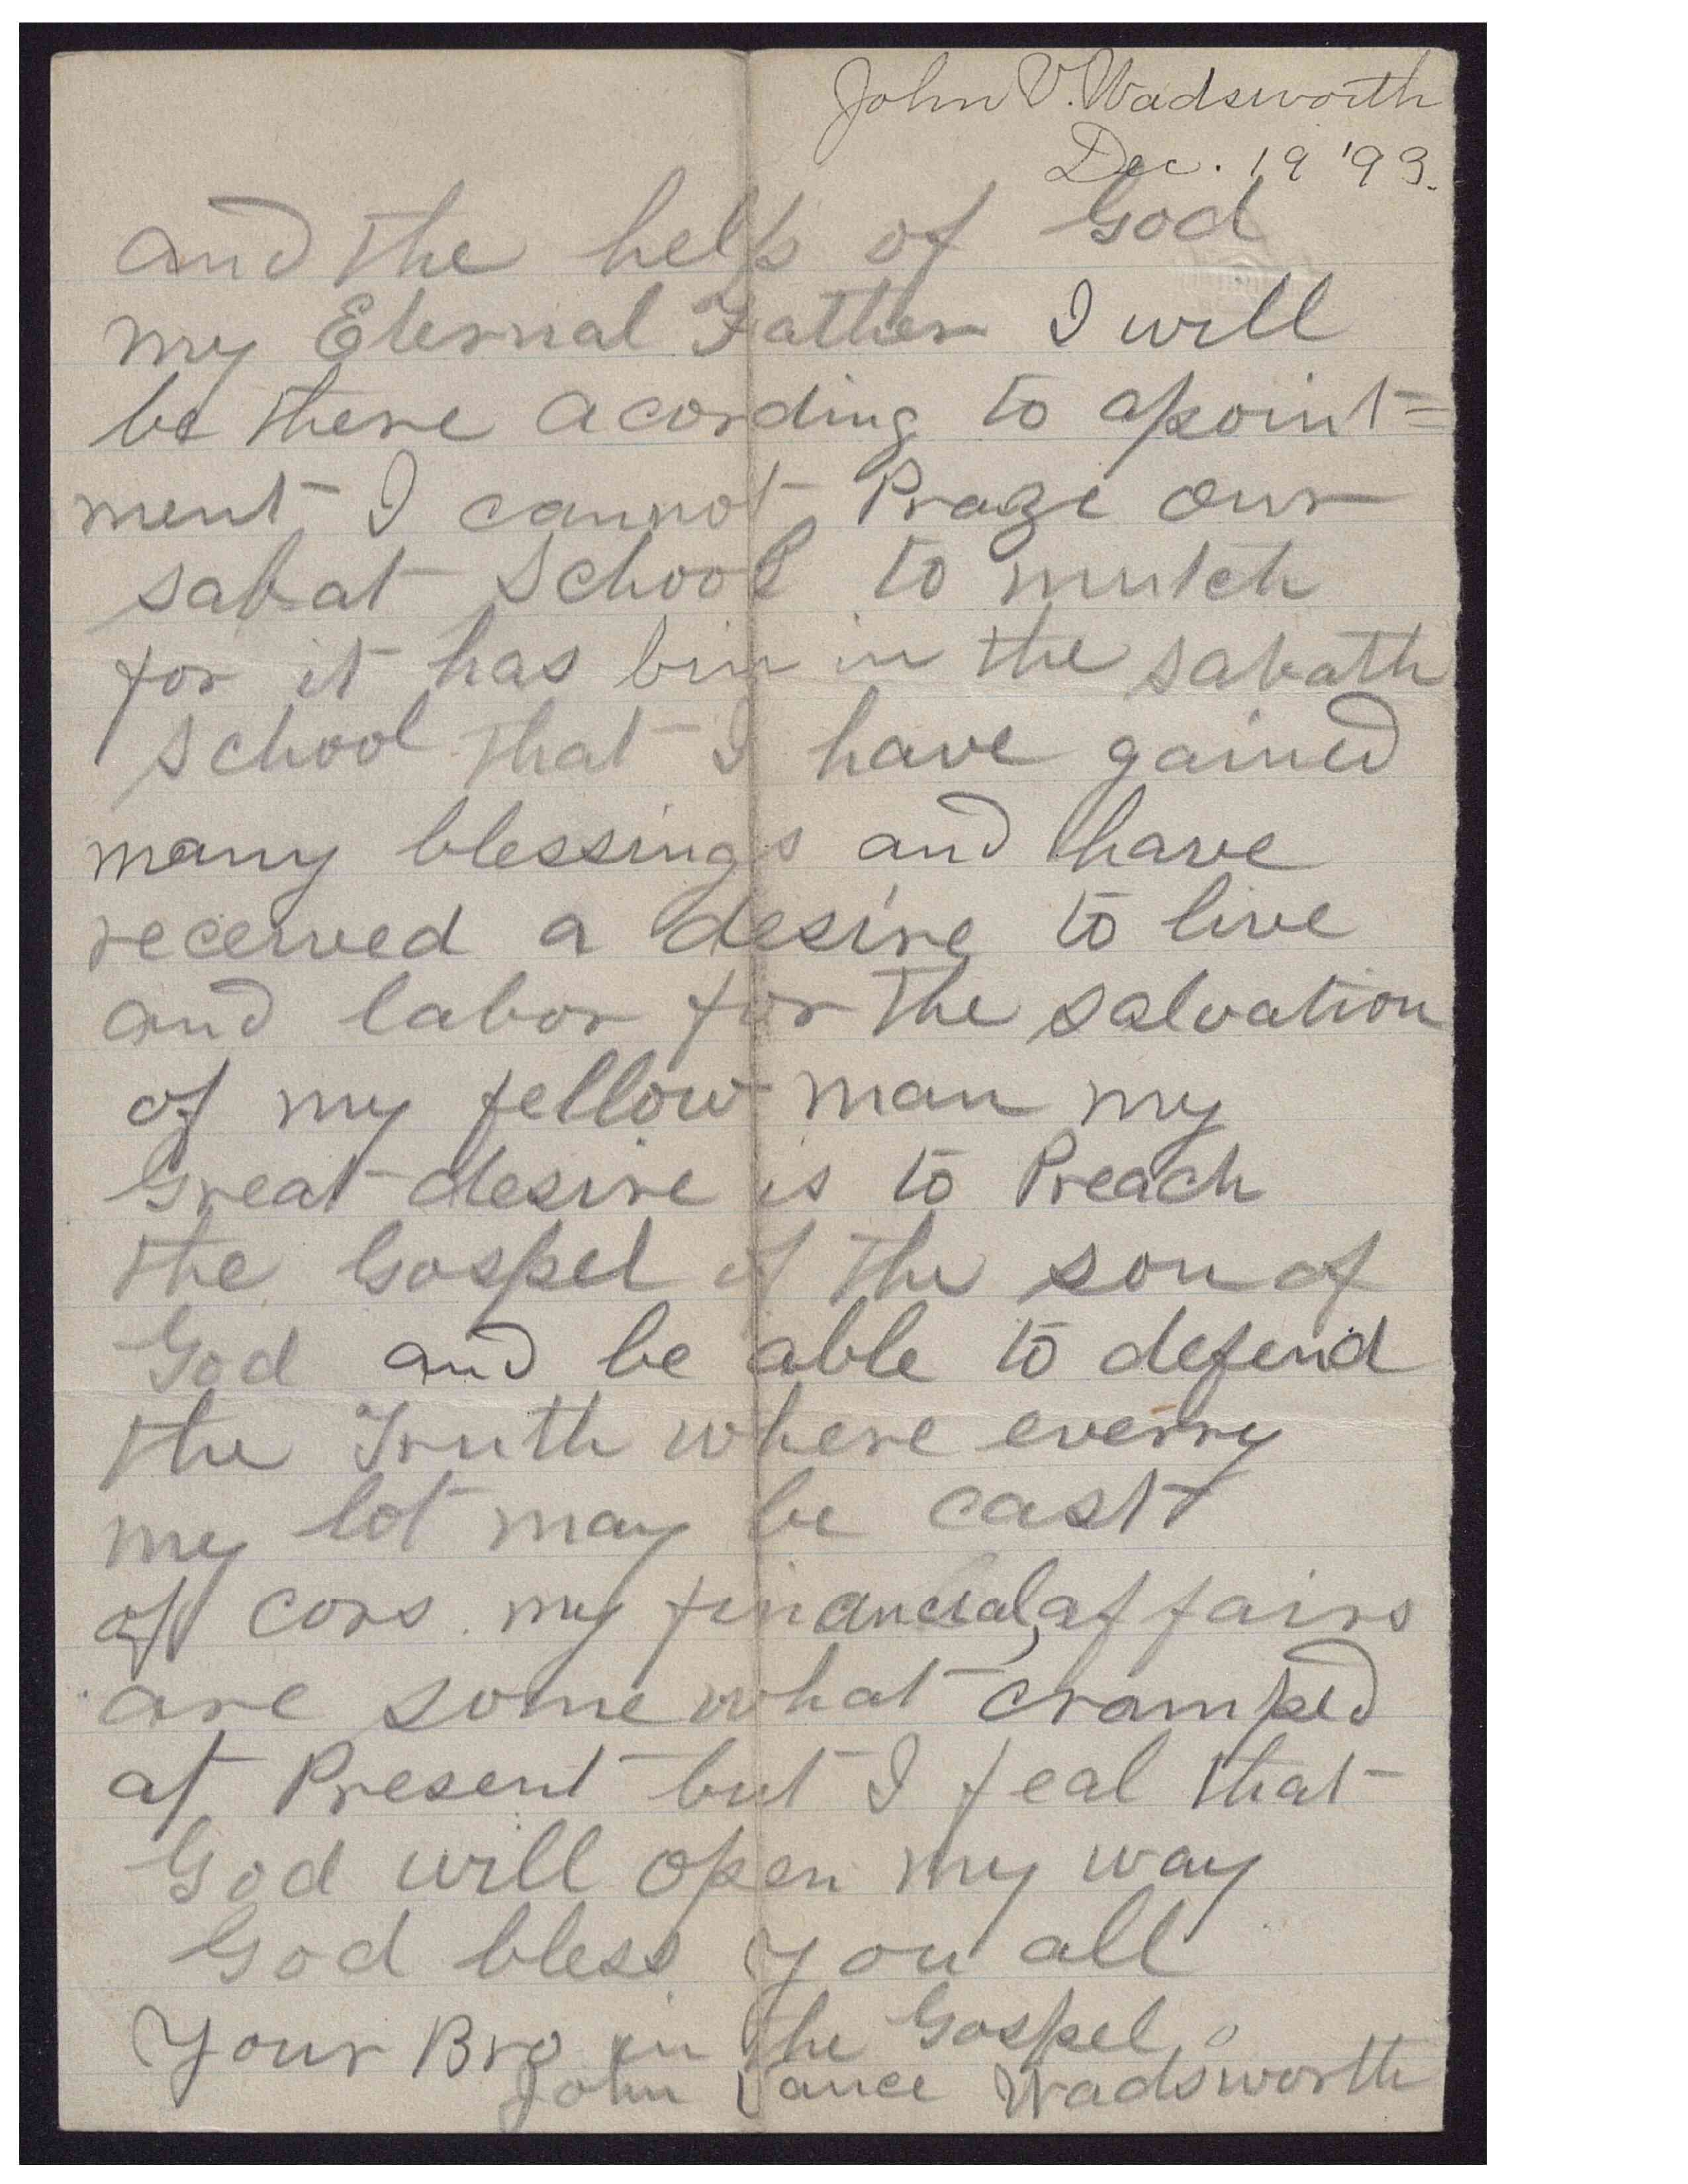 John V. Wadsworth
Dec. 19 '93.
and the help of God
my Eternal Father I will
be there acording to apoint=
ment I cannot Praze our
sabat School to mutch
for it has bin in the sabath
School that I have gained
many blessings and have
received a desire to live
and labor for the salvation
of my fellow man my
Great desire is to Preach
the Gospel of the son of
God and be able to defend
the Truth where everry
my lot may be cast
of cors my financial affairs
are some what cramped
at Present but I feal that
God will open my way
God bless you all
Your Bro in the Gospel
John Vance Wadsworth